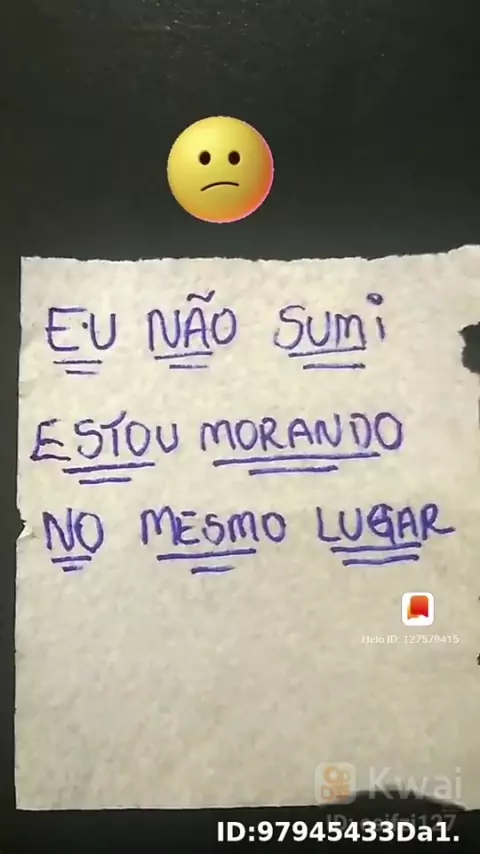 EU NÃO SUMi
ESTOU MORANDO
NO MESMO LUGAR
Helo ID: 127579415
Kwai
ID:97945433Da1.